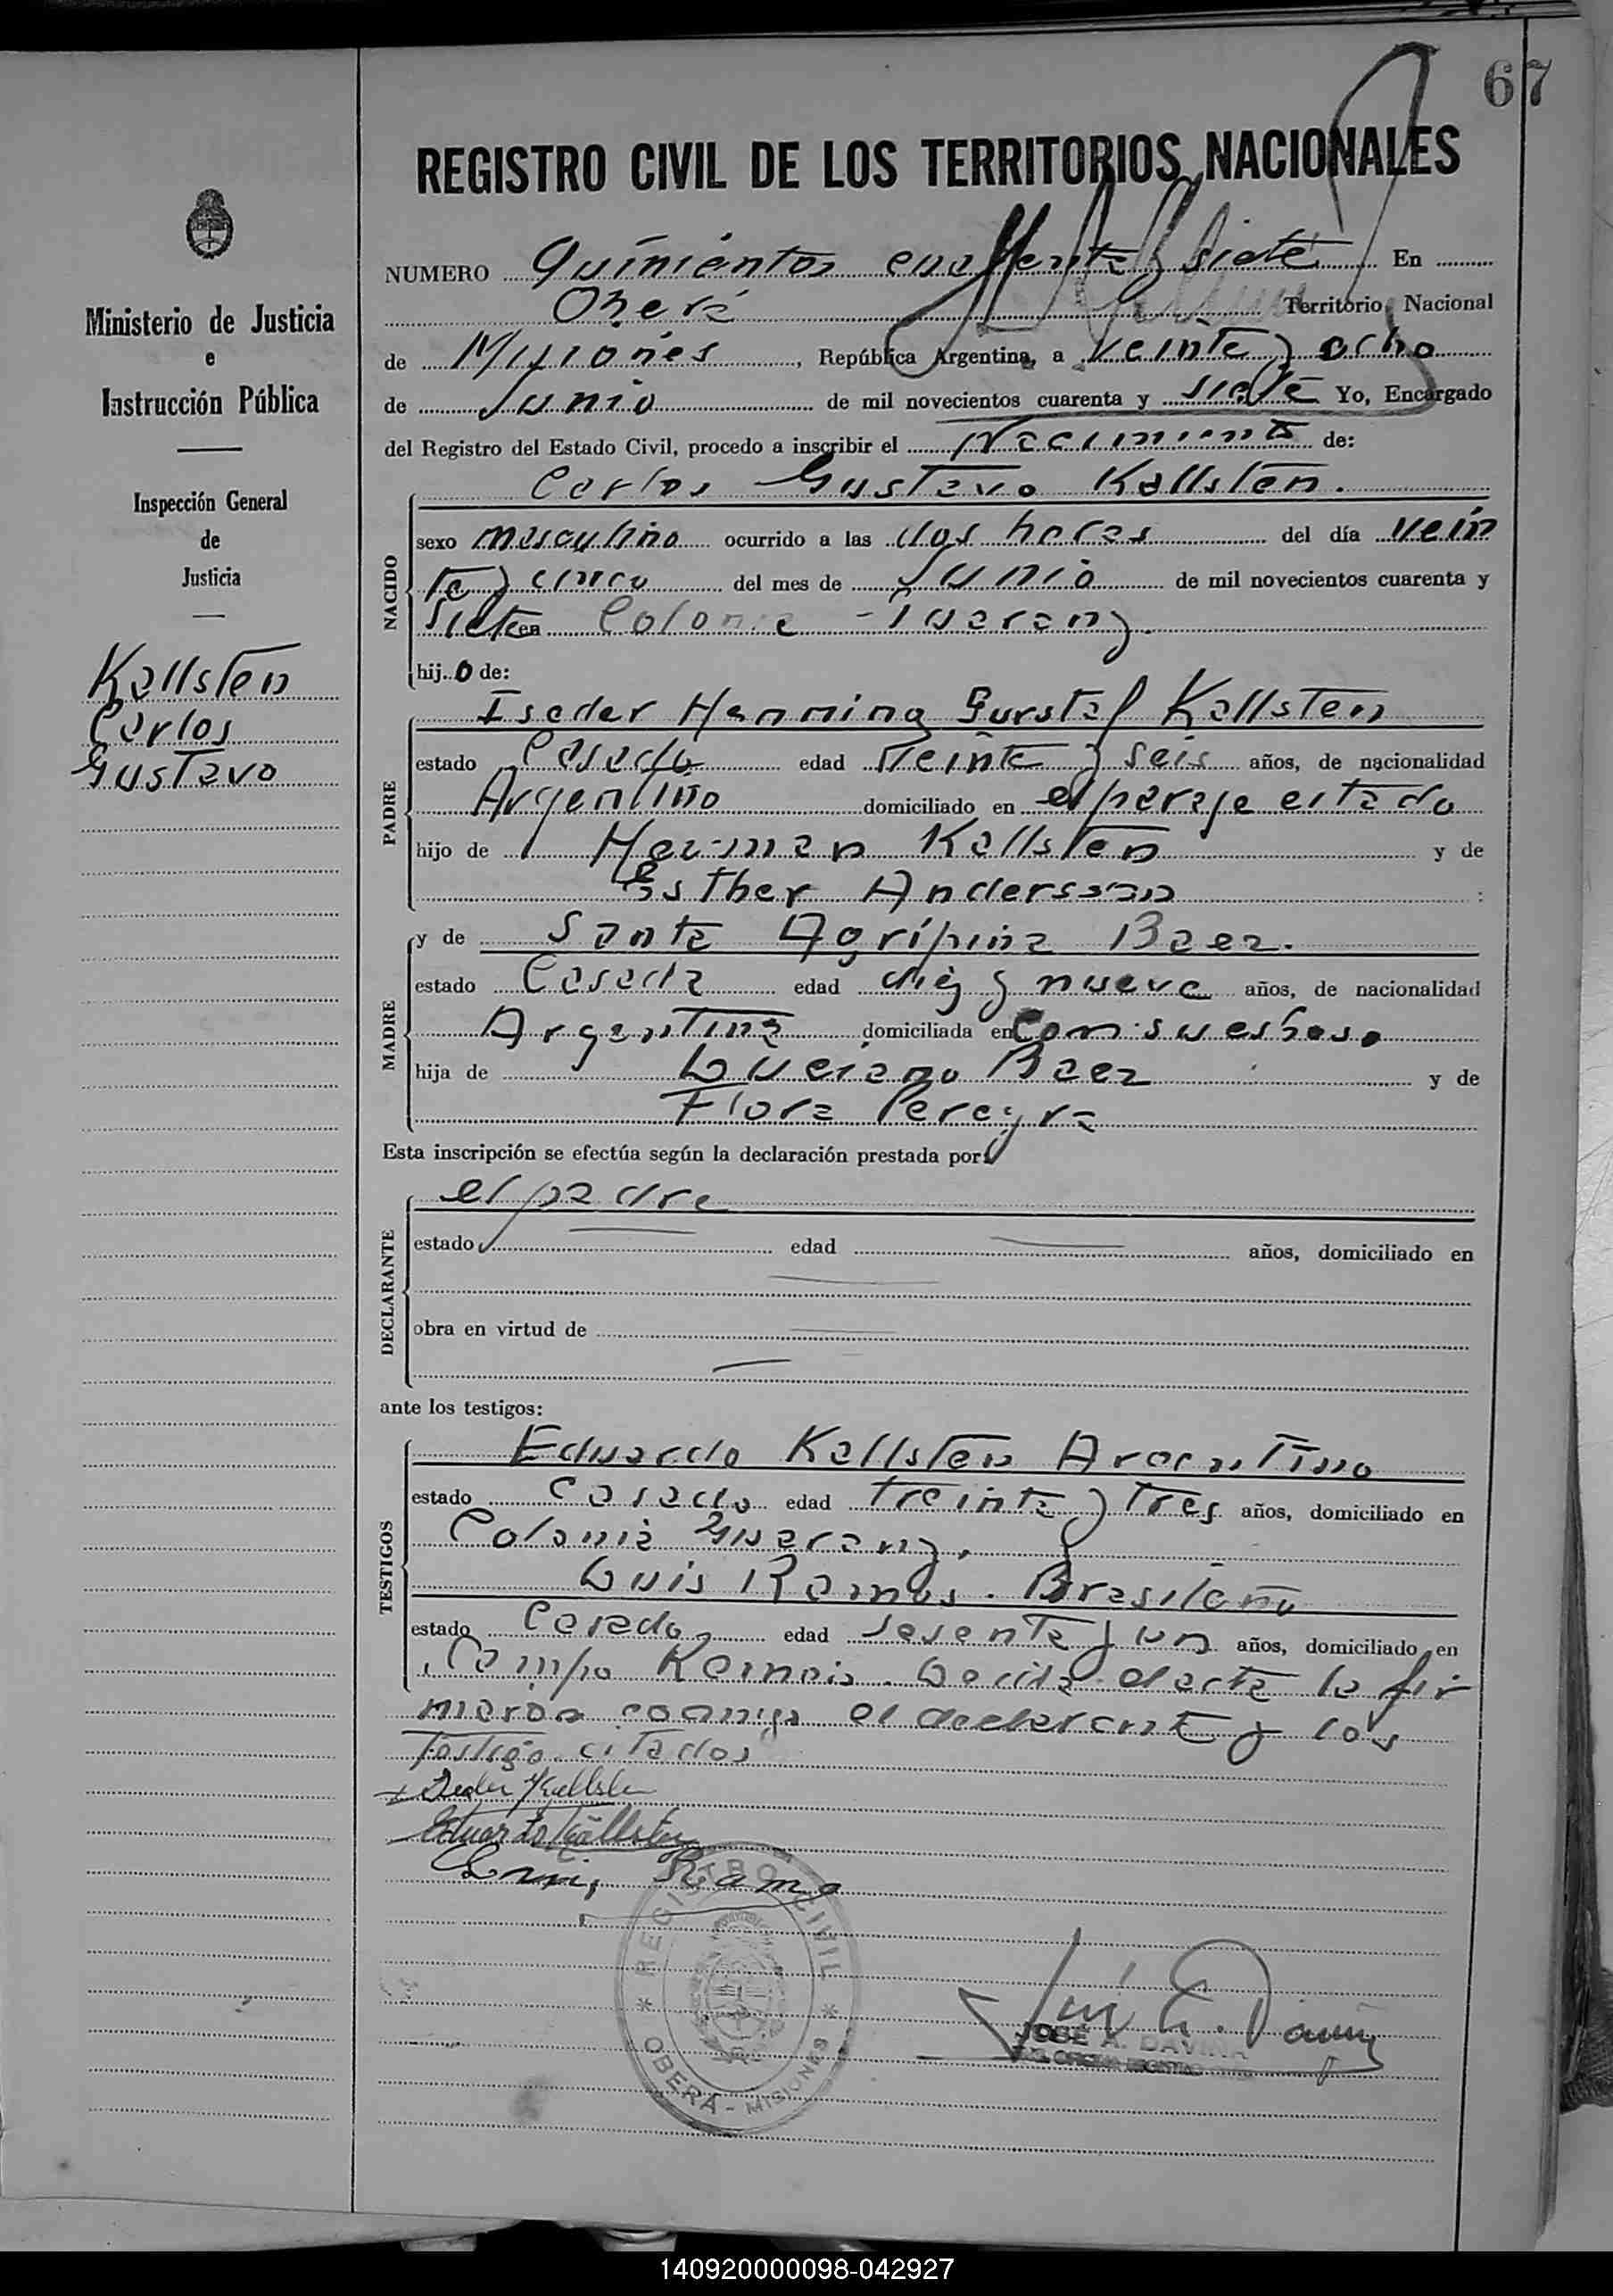 67
REGISTRO CIVIL DE LOS TERRITORIOS NACIONALES
NUMERO Quinientos cuarenta y siete En
Oberá Territorio Nacional
de Misiones, República Argentina, a veinte y ocho
de Junio de mil novecientos cuarenta y siete Yo, Encargado
del Registro del Estado Civil, procedo a inscribir el Nacimiento de:
Carlos Gustavo Kallsten.
NACIDO
sexo masculino ocurrido a las dos horas del día vein
te y cinco del mes de Junio de mil novecientos cuarenta y
siete en Colonia Guarany.
hijo de:
PADRE
Iseder Henning Gurstaf Kallsten
estado Casado edad treinta y seis años, de nacionalidad
Argentino domiciliado en el paraje citado
hijo de Herman Kallsten y de
Esther Andersson
MADRE
y de Santa Agripina Baez.
estado Casada edad diez y nueve años, de nacionalidad
Argentina domiciliada en Con su esposo
hija de Luciano Baez y de
Flora Pereyra
Esta inscripción se efectúa según la declaración prestada por:
DECLARANTE
el padre
estado edad años, domiciliado en
obra en virtud de
ante los testigos:
TESTIGOS
Eduardo Kallsten Argentino
estado Casado edad treinta y tres años, domiciliado en
Colonia Guarany.
Luis Ramos. Brasileño
estado Casado edad sesenta y un años, domiciliado en
Campo Ramon. Leída el acta la fir
maron conmigo el declarante y los
testigo citados
Kallsten
Eduardo Källsten
Luis Ramo
REGISTRO CIVIL
* OBERÁ - MISIONES *
JOSÉ A. DAVIÑA
Ministerio de Justicia
e
Instrucción Pública
Inspección General
de
Justicia
Kallsten
Carlos
Gustavo
140920000098-042927